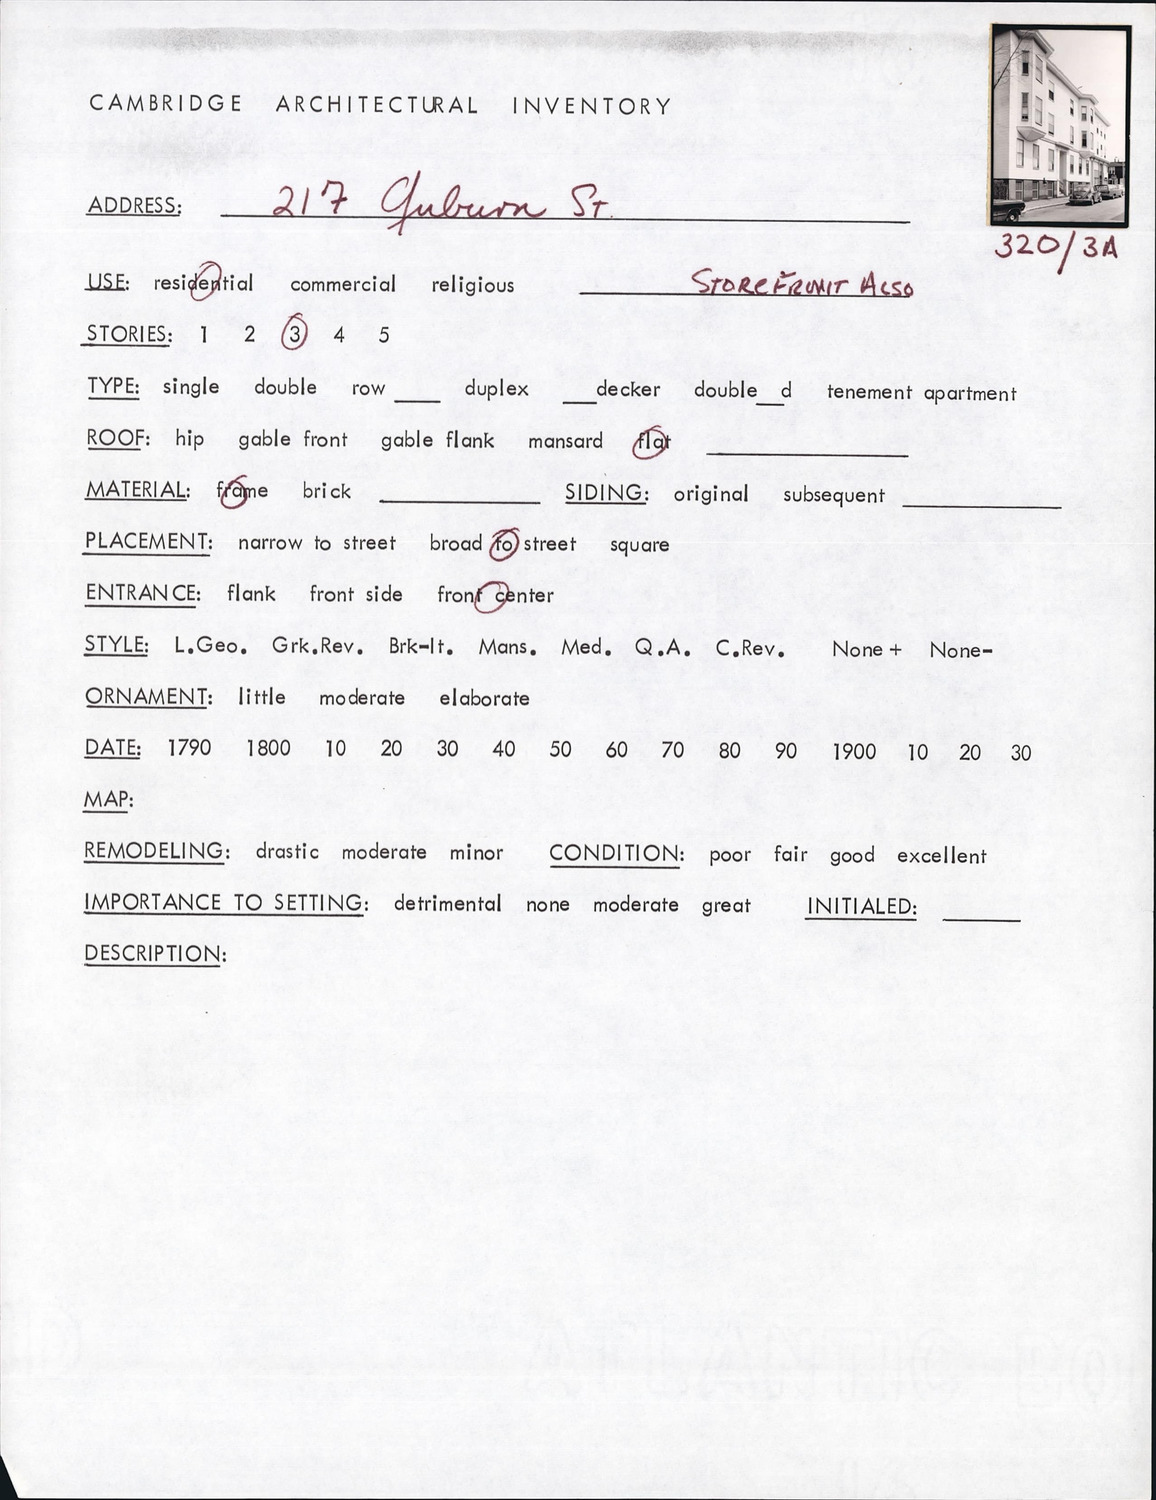 CAMBRIDGE ARCHITECTURAL INVENTORY
ADDRESS: 217 Auburn St.
320/3A
USE: residential commercial religious StoreFront Also
STORIES: 1 2 3 4 5
TYPE: single double row ____ duplex ___decker double__d tenement apartment
ROOF: hip gable front gable flank mansard flat
MATERIAL: frame brick ____ SIDING: original subsequent ____
PLACEMENT: narrow to street broad to street square
ENTRANCE: flank front side front center
STYLE: L.Geo. Grk.Rev. Brk-It. Mans. Med. Q.A. C.Rev. None+ None-
ORNAMENT: little moderate elaborate
DATE: 1790 1800 10 20 30 40 50 60 70 80 90 1900 10 20 30
MAP:
REMODELING: drastic moderate minor CONDITION: poor fair good excellent
IMPORTANCE TO SETTING: detrimental none moderate great INITIALED: ____
DESCRIPTION: